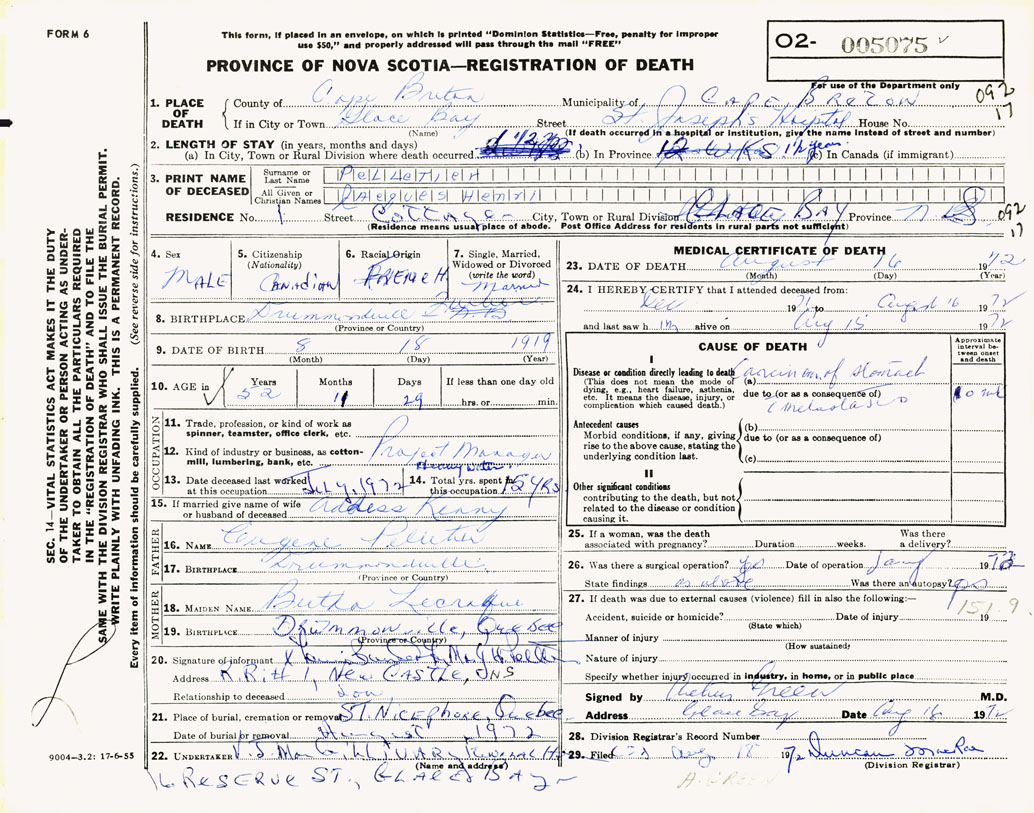 FORM 6
This form, if placed in an envelope, on which is printed "Dominion Statistics—Free, penalty for improper
use $50," and properly addressed will pass through the mail "FREE"
PROVINCE OF NOVA SCOTIA—REGISTRATION OF DEATH
O2- 005075
For use of the Department only
092
17
1. PLACE OF DEATH
County of Cape Breton Municipality of CAPE BRETON
If in City or Town Glace Bay Street St. Joseph's Hospital House No.
(Name) (If death occurred in a hospital or institution, give the name instead of street and number)
2. LENGTH OF STAY (in years, months and days)
(a) In City, Town or Rural Division where death occurred (b) In Province 1½ years (c) In Canada (if immigrant)
3. PRINT NAME OF DECEASED
Surname or Last Name PELLETIER
All Given or Christian Names JACQUES HENRI
RESIDENCE No. 1 Street Cottage City, Town or Rural Division GLACE BAY Province N.S.
092
17
(Residence means usual place of abode. Post Office Address for residents in rural parts not sufficient)
4. Sex MALE
5. Citizenship (Nationality) CANADIAN
6. Racial Origin FRENCH
7. Single, Married, Widowed or Divorced (write the word) Married
8. BIRTHPLACE Drummondville Quebec
(Province or Country)
9. DATE OF BIRTH 8 18 1919
(Month) (Day) (Year)
10. AGE in Years 52 Months 11 Days 29 If less than one day old hrs. or min.
OCCUPATION
11. Trade, profession, or kind of work as spinner, teamster, office clerk, etc. Project Manager
12. Kind of industry or business, as cotton-mill, lumbering, bank, etc. Heavy water
13. Date deceased last worked at this occupation July, 1972
14. Total yrs. spent in this occupation 15 YRS
15. If married give name of wife or husband of deceased Kenny
FATHER
16. NAME Eugene Pelletier
17. BIRTHPLACE Drummondville
(Province or Country)
MOTHER
18. MAIDEN NAME Bertha
19. BIRTHPLACE DRUMMONVILLE, QUEBEC
(Province or Country)
20. Signature of informant
Address R.R.# 1, NEW CASTLE, NS
Relationship to deceased Son
21. Place of burial, cremation or removal ST. NICEPHORE, Quebec
Date of burial or removal August 1972
22. UNDERTAKER V.J. McGillivary Funeral H.
(Name and address)
16 RESERVE ST., GLACE BAY
MEDICAL CERTIFICATE OF DEATH
23. DATE OF DEATH August 16 1972
(Month) (Day)
24. I HEREBY CERTIFY that I attended deceased from:
Dec 1971 to August 16 1972
and last saw him alive on Aug 15 1972
CAUSE OF DEATH
Approximate interval between onset and death
I
Disease or condition directly leading to death (a) Carcinoma of stomach
(This does not mean the mode of dying, e.g., heart failure, asthenia, etc. It means the disease, injury, or complication which caused death.)
due to (or as a consequence of)
(metastases
Antecedent causes
Morbid conditions, if any, giving rise to the above cause, stating the underlying condition last.
(b)
due to (or as a consequence of)
(c)
II
Other significant conditions
contributing to the death, but not related to the disease or condition causing it.
25. If a woman, was the death associated with pregnancy? Duration weeks. Was there a delivery?
26. Was there a surgical operation? yes Date of operation Jany 1972
State findings as above Was there an autopsy? yes
27. If death was due to external causes (violence) fill in also the following:—
151.9
Accident, suicide or homicide? Date of injury 19
(State which)
Manner of injury
(How sustained)
Nature of injury
Specify whether injury occurred in industry, in home, or in public place
Signed by Green M.D.
Address Glace Bay Date Aug 16 1972
28. Division Registrar's Record Number
29. Filed Aug 18 1972 Duncan MacRae
(Division Registrar)
A. GREEN
9004—3.2: 17-6-55
SEC. 14—VITAL STATISTICS ACT MAKES IT THE DUTY
OF THE UNDERTAKER OR PERSON ACTING AS UNDER-
TAKER TO OBTAIN ALL THE PARTICULARS REQUIRED
IN THE "REGISTRATION OF DEATH" AND TO FILE THE
SAME WITH THE DIVISION REGISTRAR WHO SHALL ISSUE THE BURIAL PERMIT.
WRITE PLAINLY WITH UNFADING INK. THIS IS A PERMANENT RECORD.
Every item of information should be carefully supplied. (See reverse side for instructions.)